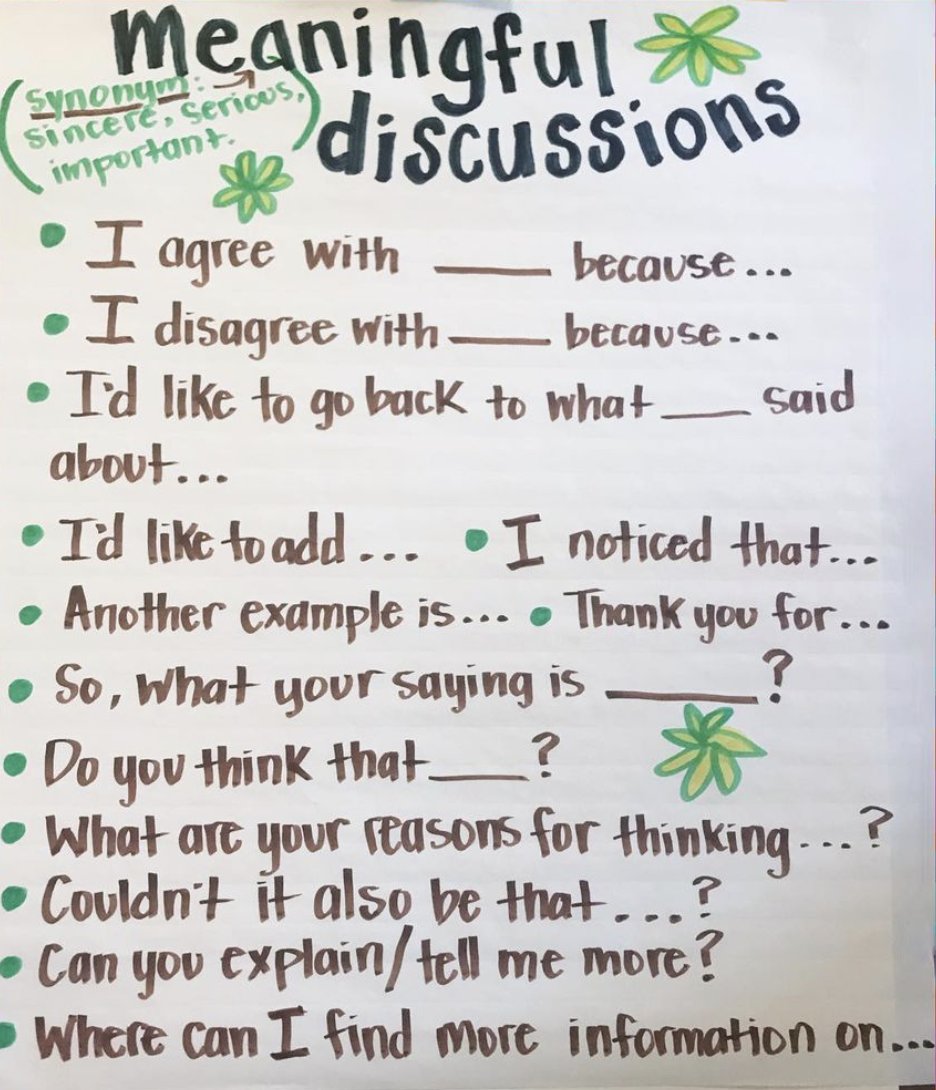 Meaningful
(Synonym: →
sincere, serious,
important.)
discussions
• I agree with ____ because...
• I disagree with ____ because...
• I'd like to go back to what ____ said
about...
• I'd like to add... • I noticed that...
• Another example is... • Thank you for...
• So, what your saying is ____?
• Do you think that ____?
• What are your reasons for thinking...?
• Couldn't it also be that....?
• Can you explain/tell me more?
• Where can I find more information on...